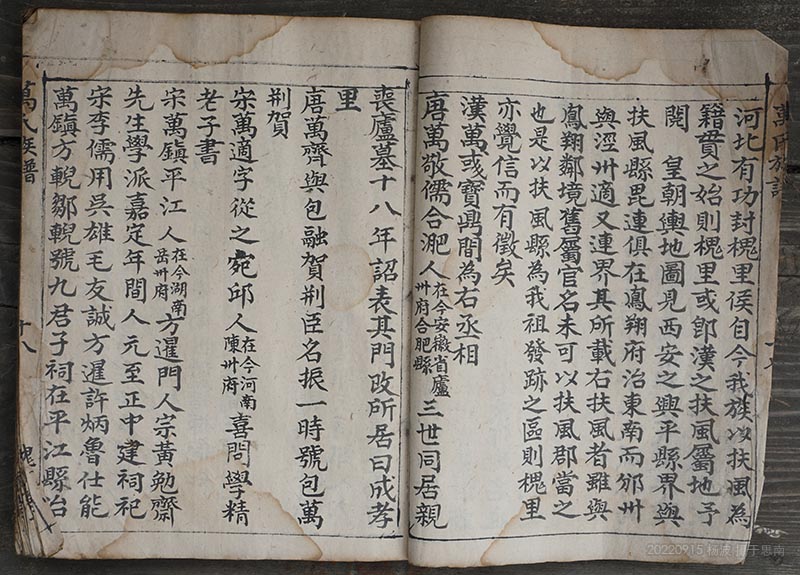 河北有功封槐里侯自今我族以扶風為
籍賁之始則槐里或即漢之扶風屬地予
閱　皇朝輿地圖見西安之興平縣界與
扶風縣毘連俱在鳳翔府治東南而邠州
與涇州適又連界其所載右扶風者雖與
鳳翔鄰境舊屬官名未可以扶風郡當之
也是以扶風縣為我祖發跡之區則槐里
亦覺信而有徵矣
漢萬彧寶鼎間為右丞相
唐萬敬儒合淝人在今安徽省廬州府合肥縣三世同居親
喪廬墓十八年詔表其門改所居曰成孝
里
唐萬齊與包融賀荆臣名振一時號包萬
荆賀
宋萬適字從之宛邱人在今河南陳州府喜問學精
老子書
宋萬鎮平江人在今湖南岳州府方暹門人宗黃勉齋
先生學派嘉定年間人元至正中建祠祀
宋李儒用吳雄毛友誠方暹許炳魯仕能
萬鎮方輗鄒輗號九君子祠在平江縣治
萬氏族譜
十八
20220915 杨波 于思南